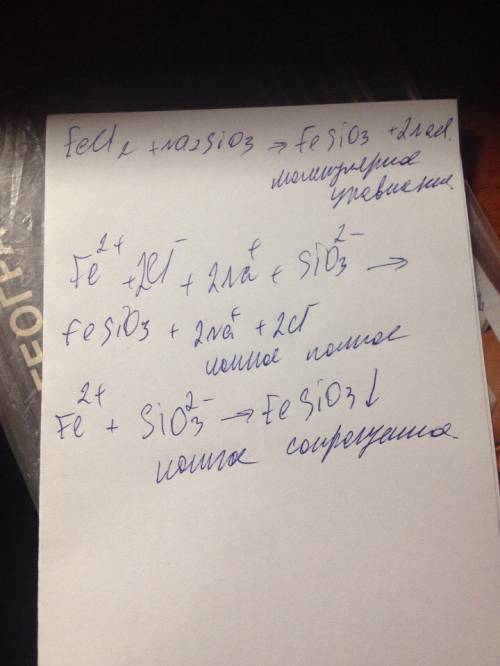 FeCl₂ + Na₂SiO₃ → FeSiO₃ + 2NaCl.
молекулярное
уравнение.
Fe²⁺ + 2Cl⁻ + 2Na⁺ + SiO₃²⁻ →
FeSiO₃ + 2Na⁺ + 2Cl⁻
ионное полное
Fe²⁺ + SiO₃²⁻ → FeSiO₃↓
ионное сокращенное
ГЕОГРА